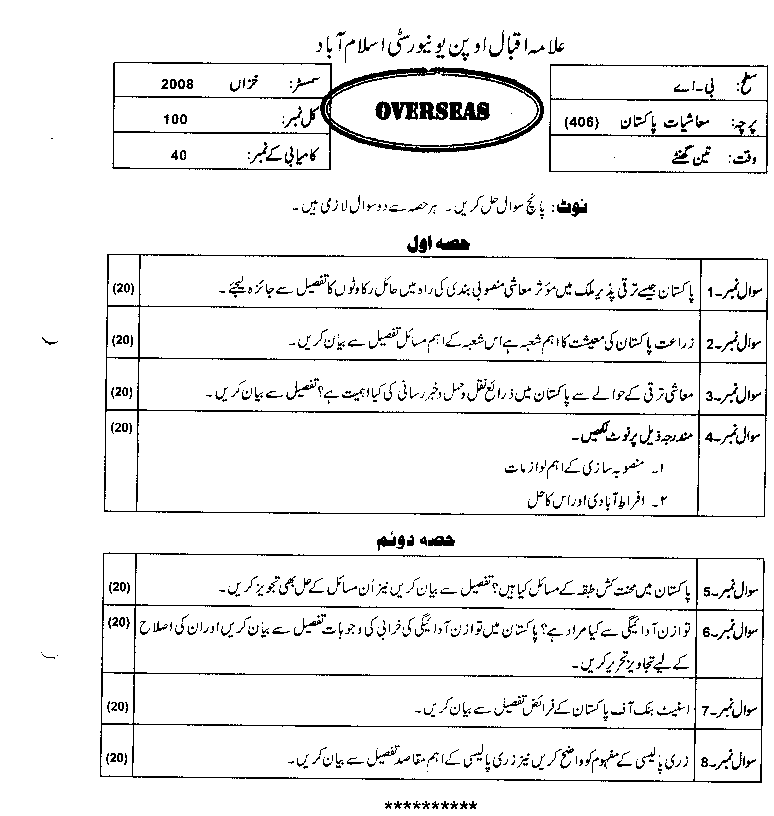 علامہ اقبال اوپن یونیورسٹی اسلام آباد
سطح: بی۔اے
پرچہ: معاشیات پاکستان (406)
وقت: تین گھنٹے
OVERSEAS
سمسٹر: خزاں 2008
کل نمبر: 100
کامیابی کے نمبر: 40
نوٹ: پانچ سوال حل کریں۔ ہر حصہ سے دو سوال لازمی ہیں۔
حصہ اول
سوال نمبر۔1 پاکستان جیسے ترقی پذیر ملک میں مؤثر معاشی منصوبہ بندی کی راہ میں حائل رکاوٹوں کا تفصیل سے جائزہ لیجئے۔ (20)
سوال نمبر۔2 زراعت پاکستان کی معیشت کا اہم شعبہ ہے اس شعبہ کے اہم مسائل تفصیل سے بیان کریں۔ (20)
سوال نمبر۔3 معاشی ترقی کے حوالے سے پاکستان میں ذرائع نقل و حمل و خبر رسانی کی کیا اہمیت ہے؟ تفصیل سے بیان کریں۔ (20)
سوال نمبر۔4 مندرجہ ذیل پر نوٹ لکھیں۔ (20)
۱۔ منصوبہ سازی کے اہم لوازمات
۲۔ افراط آبادی اور اس کا حل
حصہ دوئم
سوال نمبر۔5 پاکستان میں محنت کش طبقہ کے مسائل کیا ہیں؟ تفصیل سے بیان کریں نیز اُن مسائل کے حل بھی تجویز کریں۔ (20)
سوال نمبر۔6 توازن آدائیگی سے کیا مراد ہے؟ پاکستان میں توازن آدائیگی کی خرابی کی وجوہات تفصیل سے بیان کریں اور ان کی اصلاح (20)
کے لیے تجاویز تحریر کریں۔
سوال نمبر۔7 اسٹیٹ بنک آف پاکستان کے فرائض تفصیل سے بیان کریں۔ (20)
سوال نمبر۔8 زری پالیسی کے مفہوم کو واضح کریں نیز زری پالیسی کے اہم مقاصد تفصیل سے بیان کریں۔ (20)
**********